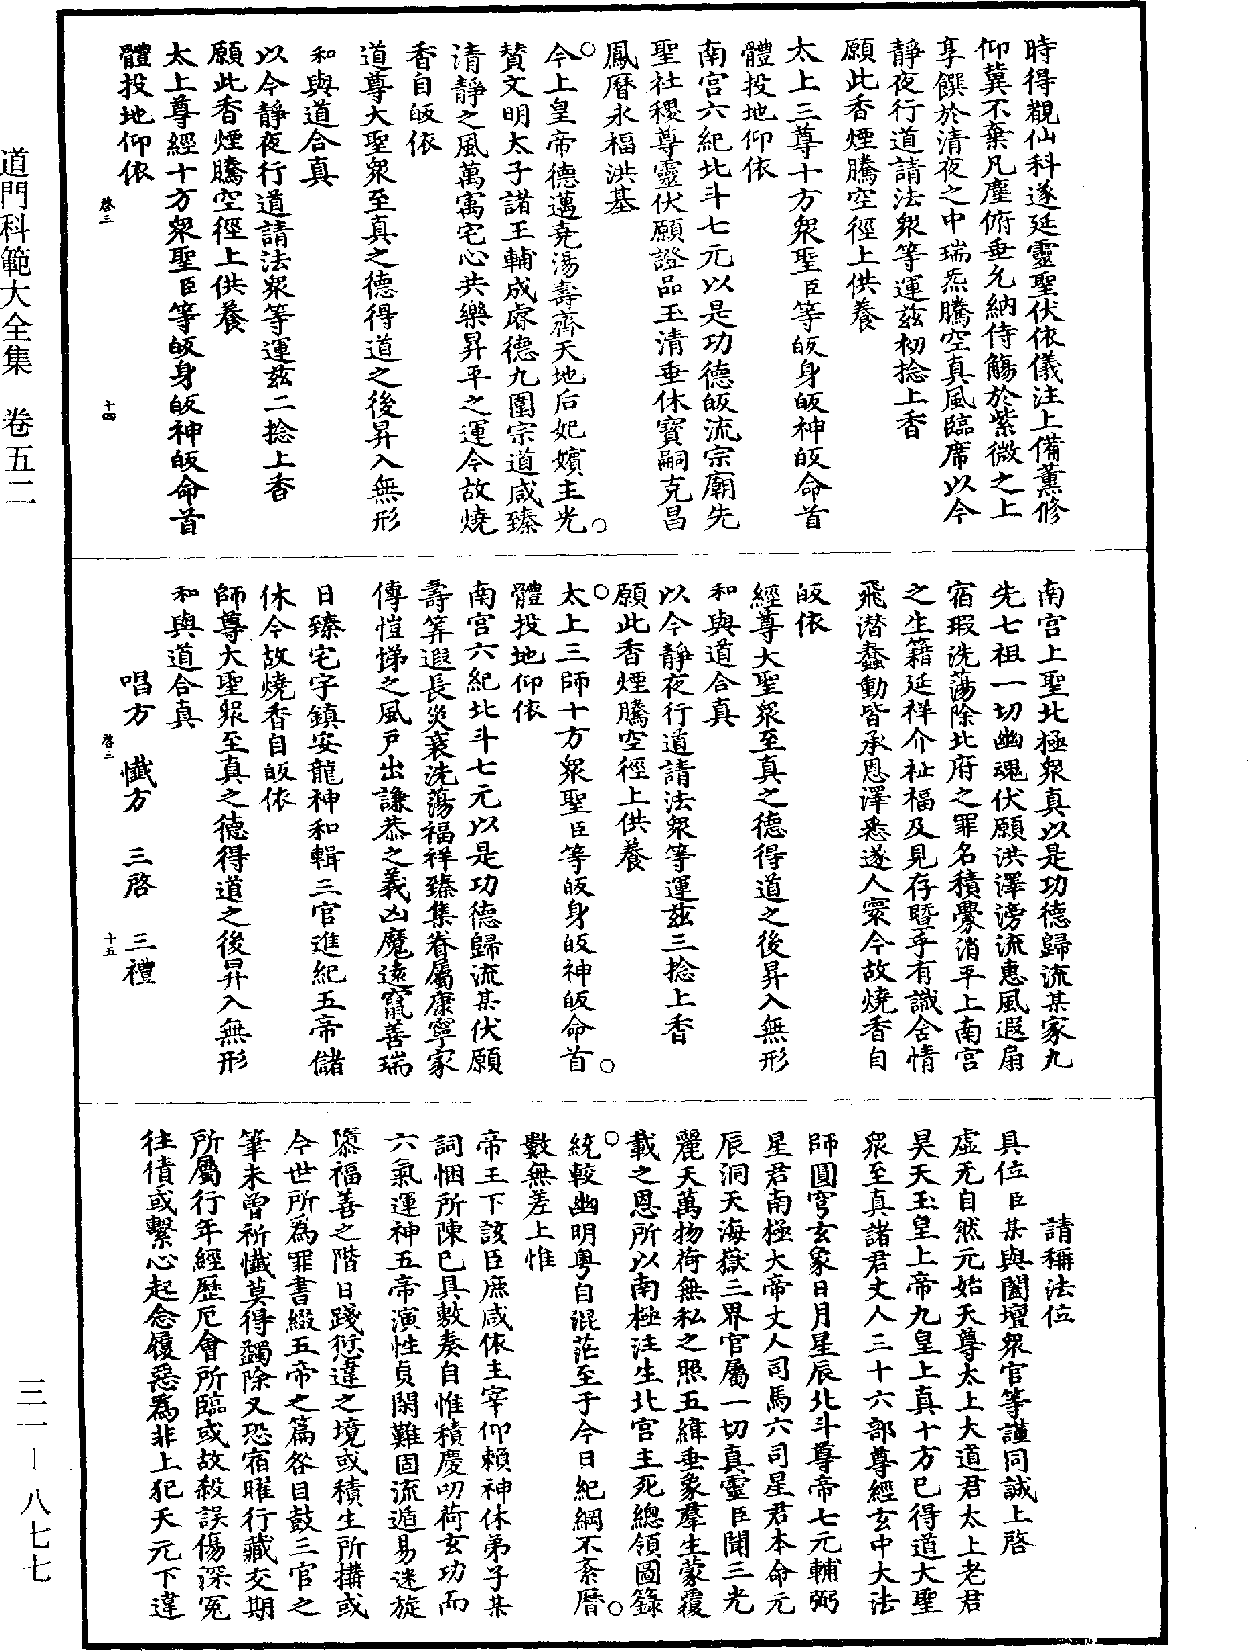 道門科範大全集　卷五二
三一－八七七
時得觀仙科遂延靈聖伏依儀注上備薰修
仰冀不棄凡塵俯垂允納侍觴於紫微之上
享饌於清夜之中瑞炁騰空真風臨席以今
靜夜行道請法衆等運茲初捻上香
願此香煙騰空徑上供養
太上三尊十方衆聖臣等皈身皈神皈命首
體投地仰依
南宫六紀北斗七元以是功德皈流宗廟先
聖社稷尊靈伏願證品玉清垂休寶嗣克昌
鳳曆永福洪基
今上皇帝德邁堯湯壽齊天地后妃嬪主光
賛文明太子諸王輔成睿德九圍宗道咸臻
清靜之風萬㝢宅心共樂昇平之運今故燒
香自皈依
道尊大聖衆至真之德得道之後昇入無形
和與道合真
以今靜夜行道請法衆等運茲二捻上香
願此香煙騰空徑上供養
太上尊經十方衆聖臣等皈身皈神皈命首
體投地仰依
啓三　十四
南宫上聖北極衆真以是功德歸流某家九
先七祖一切幽魂伏願洪澤滂流惠風遐扇
宿瑕洗蕩除北府之罪名積釁消平上南宫
之生籍延祥介祉福及見存暨乎有識含情
飛潛蠢動皆承恩澤悉遂人寰今故燒香自
皈依
經尊大聖衆至真之德得道之後昇入無形
和與道合真
以今靜夜行道請法衆等運茲三捻上香
願此香煙騰空徑上供養
太上三師十方衆聖臣等皈身皈神皈命首
體投地仰依
南宫六紀北斗七元以是功德歸流某伏願
壽筭遐長災衰洗蕩福祥臻集眷屬康寧家
傳愷悌之風戶出謙恭之義凶魔遠竄善瑞
日臻宅宇鎮安龍神和輯三官進紀五帝儲
休今故燒香自皈依
師尊大聖衆至真之德得道之後昇入無形
和與道合真
唱方　懺方　三啓　三禮
啓三　十五
請稱法位
具位臣某與闔壇衆官等謹同誠上啓
虛无自然元始天尊太上大道君太上老君
昊天玉皇上帝九皇上真十方已得道大聖
衆至真諸君丈人三十六部尊經玄中大法
師圓穹玄象日月星辰北斗尊帝七元輔弼
星君南極大帝丈人司馬六司星君本命元
辰洞天海嶽三界官屬一切真靈臣聞三光
麗天萬物荷無私之照五緯垂象羣生蒙覆
載之恩所以南極注生北宫主死總領圖籙
統較幽明粤自混茫至于今日紀綱不紊曆
數無差上惟
帝王下該臣庶咸依主宰仰賴神休弟子某
詞悃所陳已具敷奏自惟積慶叨荷玄功而
六氣運神五帝演性貞閑難固流遁易迷旋
隳福善之階日踐愆違之境或積生所搆或
今世所為罪書綴五帝之篇咎目鼓三官之
筆未曾祈懺莫得蠲除又恐宿曜行藏交期
所屬行年經歷厄會所臨或故殺誤傷深冤
往債或繫心起念履惡為非上犯天元下違